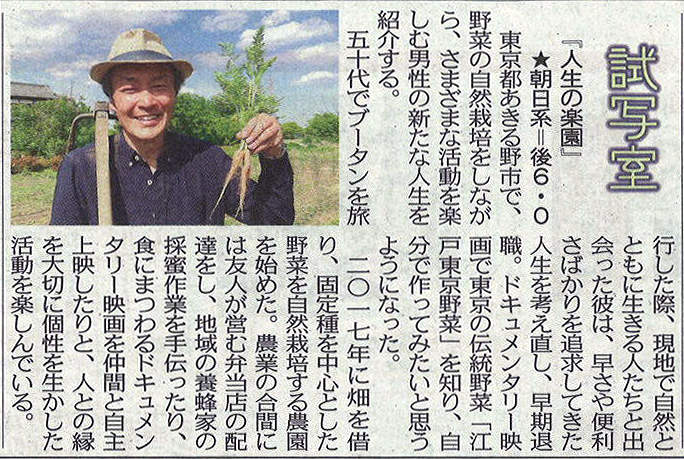 試写室
『人生の楽園』
★朝日系＝後6・0
東京都あきる野市で、
野菜の自然栽培をしなが
ら、さまざまな活動を楽
しむ男性の新たな人生を
紹介する。
五十代でブータンを旅
行した際、現地で自然と
ともに生きる人たちと出
会った彼は、早さや便利
さばかりを追求してきた
人生を考え直し、早期退
職。ドキュメンタリー映
画で東京の伝統野菜「江
戸東京野菜」を知り、自
分で作ってみたいと思う
ようになった。
二〇一七年に畑を借
り、固定種を中心とした
野菜を自然栽培する農園
を始めた。農業の合間に
は友人が営む弁当店の配
達をし、地域の養蜂家の
採蜜作業を手伝ったり、
食にまつわるドキュメン
タリー映画を仲間と自主
上映したりと、人との縁
を大切に個性を生かした
活動を楽しんでいる。